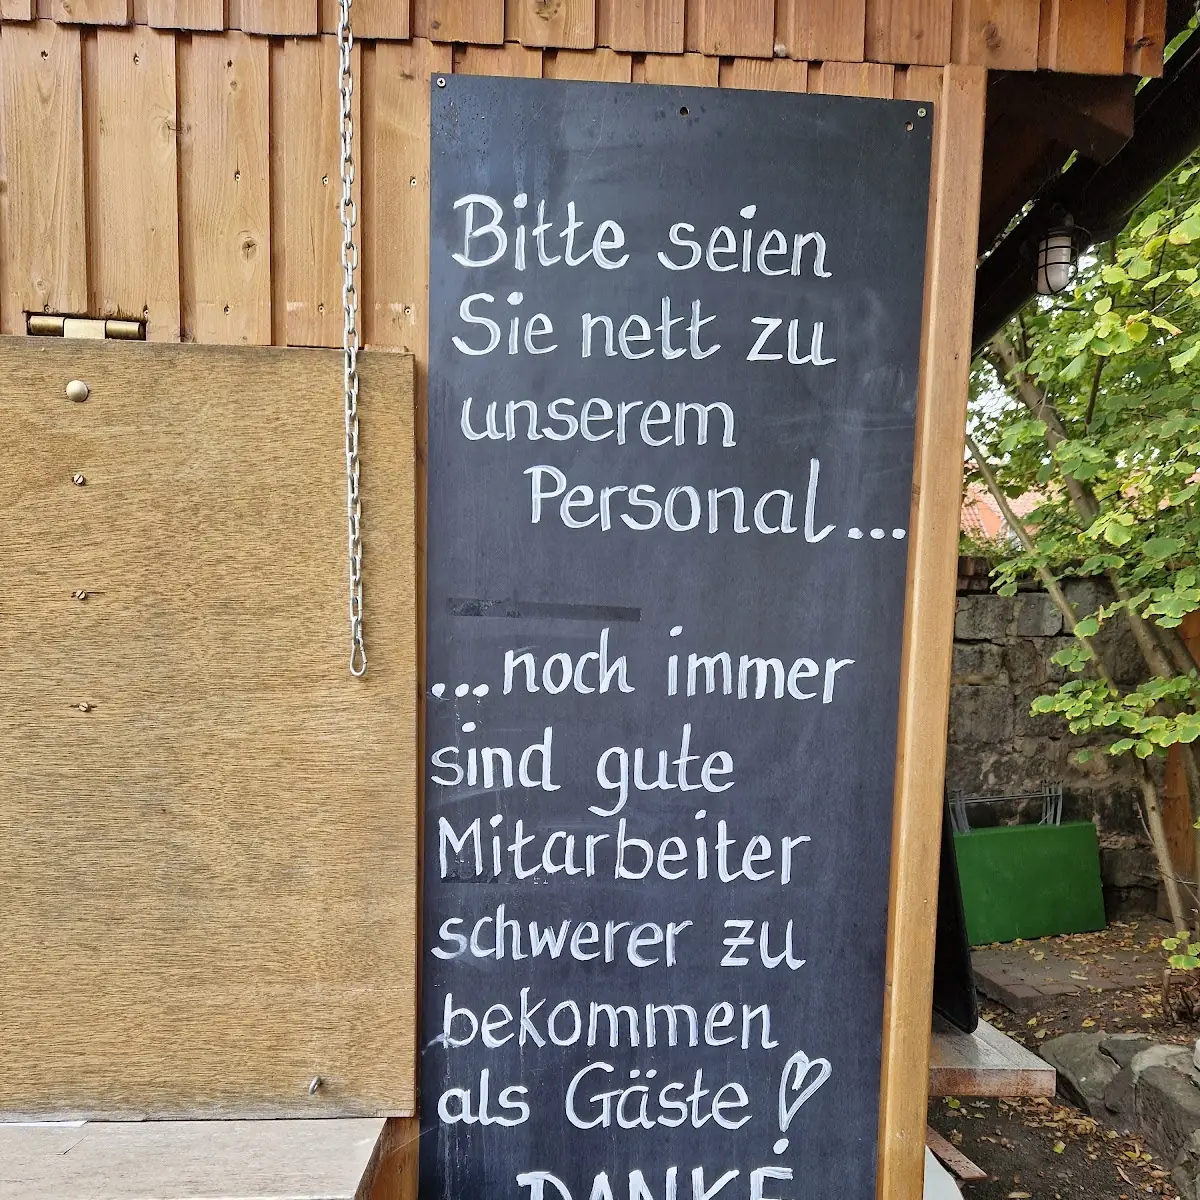 Bitte seien
Sie nett zu
unserem
Personal...
...noch immer
sind gute
Mitarbeiter
schwerer zu
bekommen
als Gäste ♡
DANKE